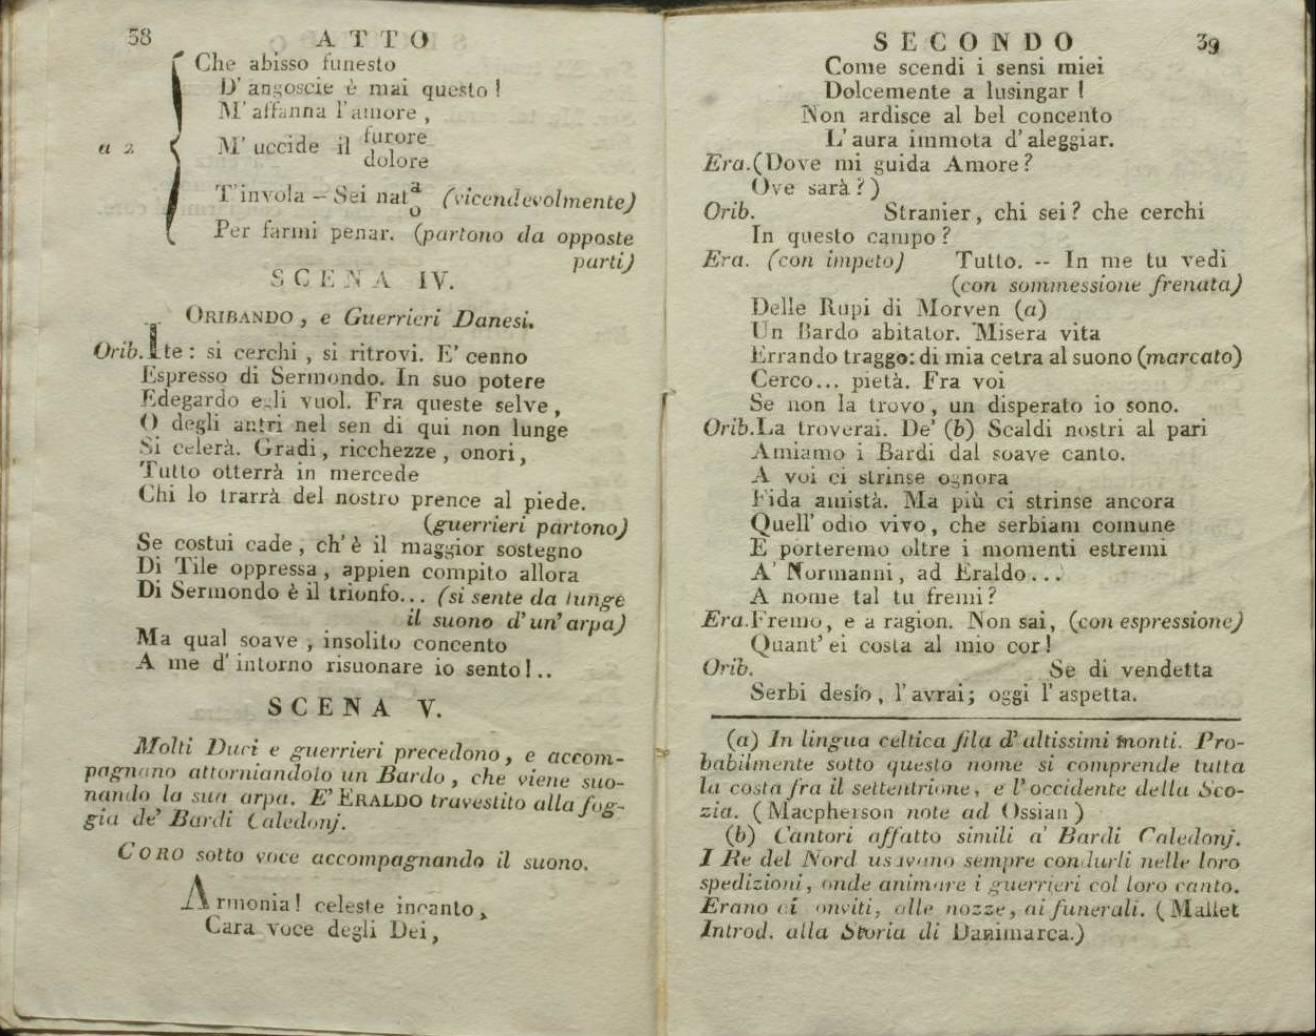 38 ATTO
Che abisso funesto
D' angoscie è mai questo !
M' affanna l' amore ,
a 2 M' uccide il furore
dolore
T' invola – Sei nata
o (vicendevolmente)
Per farmi penar. (partono da opposte
parti)
SCENA IV.
ORIBANDO , e Guerrieri Danesi.
Orib. Ite : si cerchi , si ritrovi. E' cenno
Espresso di Sermondo. In suo potere
Edegardo egli vuol. Fra queste selve ,
O degli antri nel sen di qui non lunge
Si celerà. Gradi , ricchezze , onori ,
Tutto otterrà in mercede
Chi lo trarrà del nostro prence al piede.
(guerrieri partono)
Se costui cade , ch' è il maggior sostegno
Di Tile oppressa , appien compito allora
Di Sermondo è il trionfo... (si sente da lunge
il suono d' un' arpa)
Ma qual soave , insolito concento
A me d' intorno risuonare io sento!..
SCENA V.
Molti Duci e guerrieri precedono , e accom-
pagnano attorniandolo un Bardo , che viene suo-
nando la sua arpa. E' ERALDO travestito alla fog-
gia de' Bardi Caledonj.
CORO sotto voce accompagnando il suono.
Armonia ! celeste incanto ,
Cara voce degli Dei ,
SECONDO 39
Come scendi i sensi miei
Dolcemente a lusingar !
Non ardisce al bel concento
L' aura immota d' aleggiar.
Era. (Dove mi guida Amore ?
Ove sarà ?)
Orib. Stranier , chi sei ? che cerchi
In questo campo ?
Era. (con impeto) Tutto. -- In me tu vedi
(con sommessione frenata)
Delle Rupi di Morven (a)
Un Bardo abitator. Misera vita
Errando traggo : di mia cetra al suono (marcato)
Cerco... pietà. Fra voi
Se non la trovo , un disperato io sono.
Orib. La troverai. De' (b) Scaldi nostri al pari
Amiamo i Bardi dal soave canto.
A voi ci strinse ognora
Fida amistà. Ma più ci strinse ancora
Quell' odio vivo , che serbiam comune
E porteremo oltre i momenti estremi
A' Normanni , ad Eraldo...
A nome tal tu fremi ?
Era. Fremo , e a ragion. Non sai , (con espressione)
Quant' ei costa al mio cor !
Orib. Se di vendetta
Serbi desio , l' avrai ; oggi l' aspetta.
(a) In lingua celtica fila d' altissimi monti. Pro-
babilmente sotto questo nome si comprende tutta
la costa fra il settentrione , e l' occidente della Sco-
zia. ( Macpherson note ad Ossian )
(b) Cantori affatto simili a' Bardi Caledonj.
I Re del Nord usavano sempre condurli nelle loro
spedizioni , onde animare i guerrieri col loro canto.
Erano ai conviti , alle nozze , ai funerali. ( Mallet
Introd. alla Storia di Danimarca.)